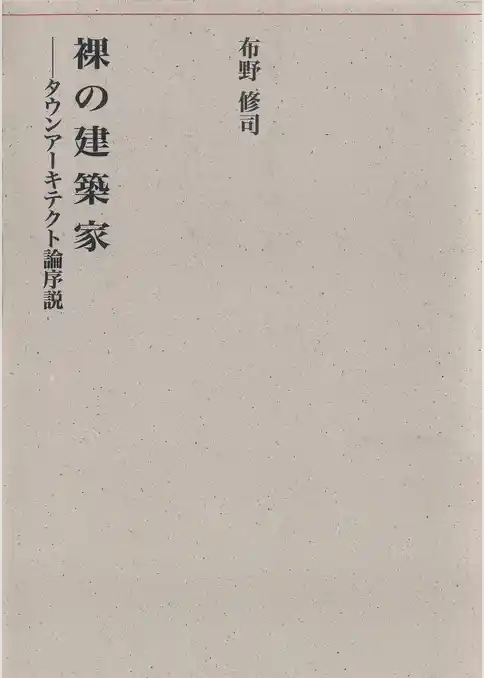 布野 修司
裸の建築家
——タウンアーキテクト論序説